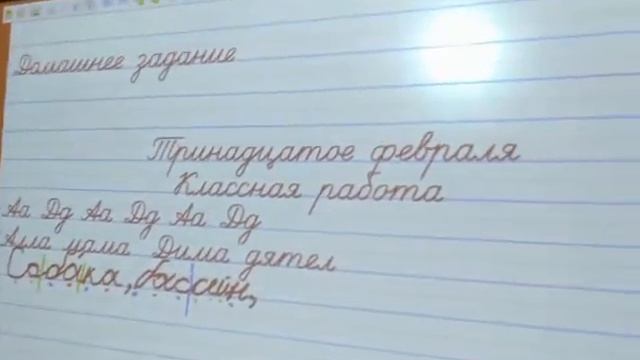 Домашнее задание
Тринадцатое февраля
Классная работа
Аа Дд Аа Дд Аа Дд
Алла Дима дятел
Собака, бассейн,